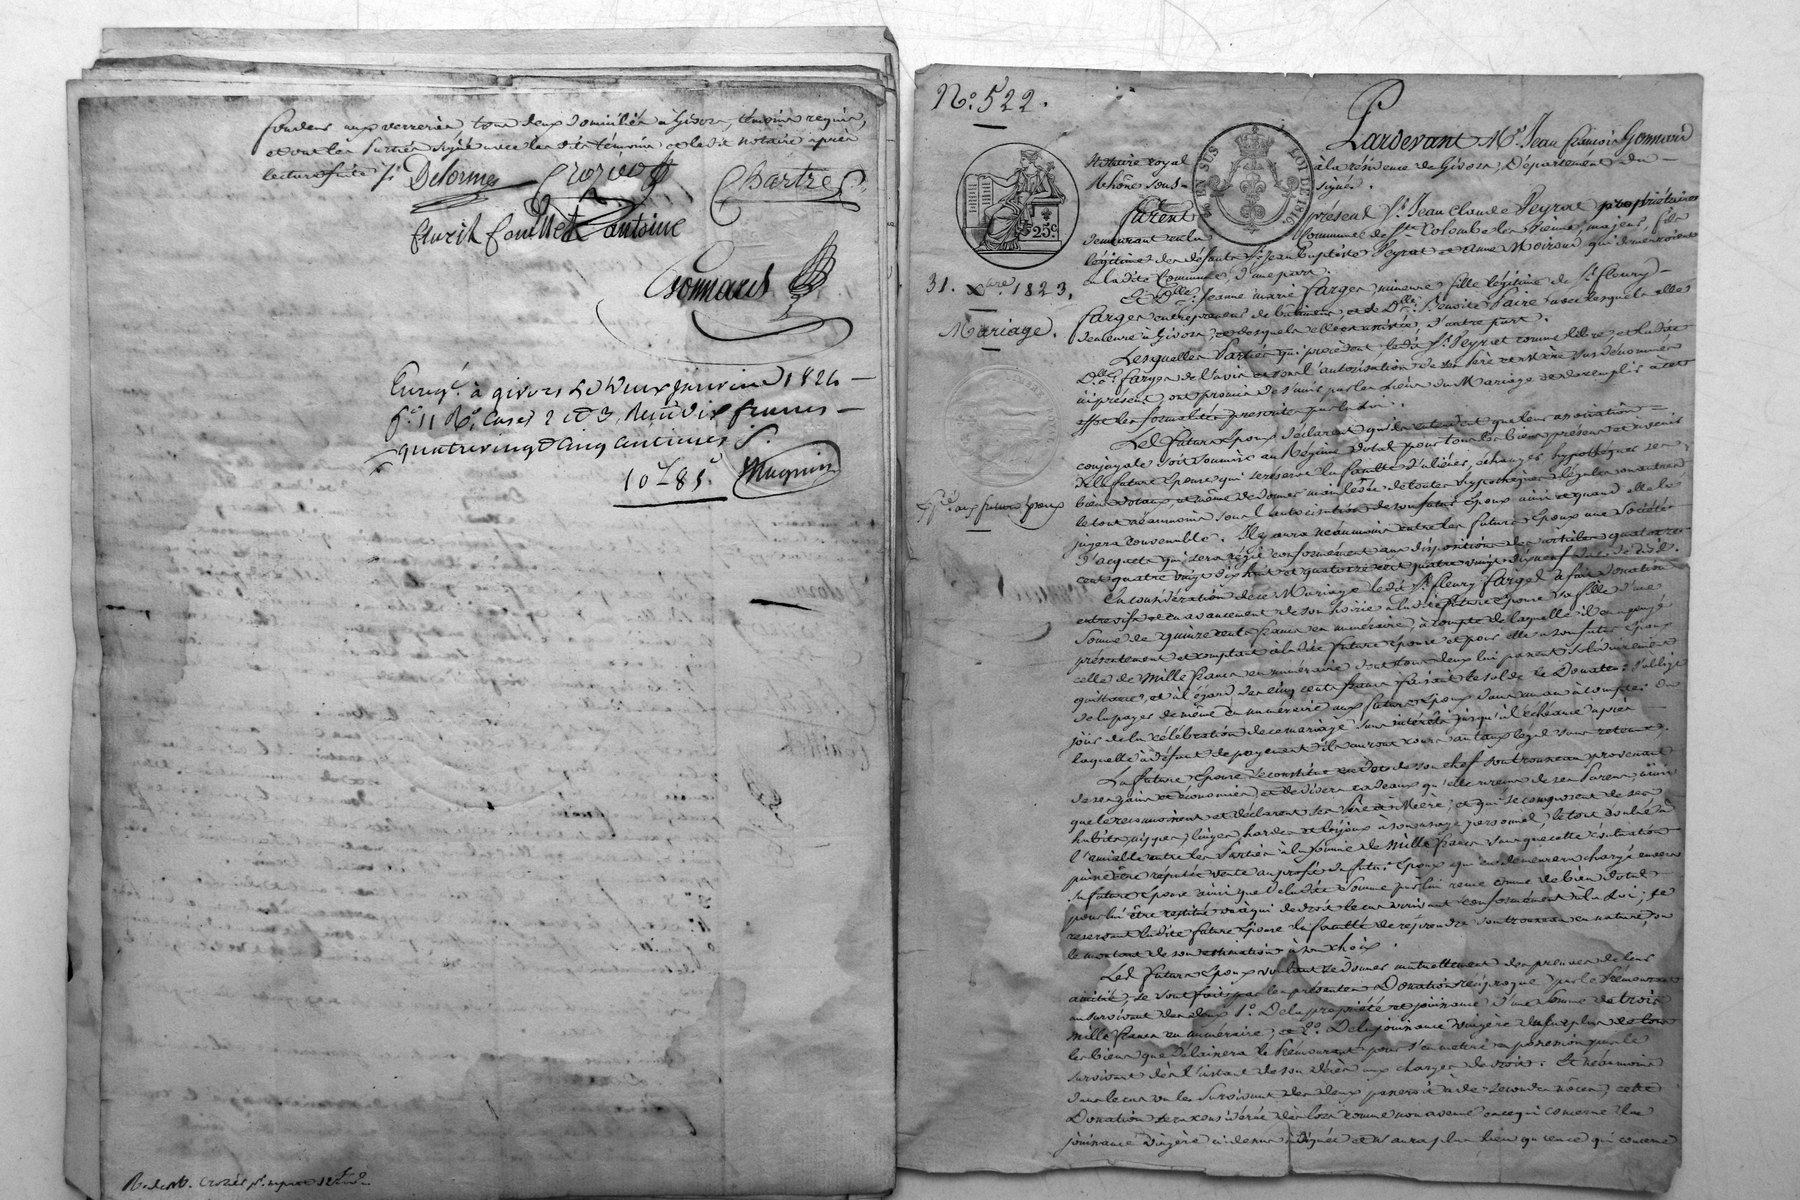 fondeur aux verreries, tous deux domiciliés à Givors, témoins requis,
et ont les parties signé avec les dits témoins et le dit notaire après
lecture faite
Delorme Crozier Chartres
Fleurit Couillet antoine
Gonnard
Enreg.é à givors le deux Janvier 1824
f.o 11 R.o Cases 2 et 3, Reçu dix francs
quatrevingt cinq centimes
10.f 85.c Magnin
N.o 522.
Pardevant M.e Jean francois Gonnard
Notaire royal à la résidence de Givors, Département du
Rhône sous- signé.
EN SUS
LOI DE 1816
25c
furent présent S.r Jean Claude Peyrat propriétaire
demeurant en la Commune de S.te Colombe les Vienne, majeur, fils
légitime de défunts S.r Jean Baptiste Peyrat et Anne Moiroux, qui demeuroient
en la dite Commune, d'une part.
31. Xbre 1823.
Et D.lle Jeanne marie Farges mineure fille légitime de S.r fleury
Farges entrepreneur de batimens, et de D.me Benoite Faire avec lesquels elle
demeure à Givors, et desquels elle est assistée, d'autre part.
Mariage.
Lesquelles Parties qui procèdent, le dit S.r Peyrat comme libre, et ladite
D.lle Farges de l'avis et sous l'autorisation de ses Père et Mère susdénommés
ici présent, ont promis de s'unir par les liens du Mariage et de remplir à cet
effet les formalités prescrites par la loi.
Les futurs Epoux déclarent qu'ils entendent que leur association
conjugale soit soumise au Régime dotal pour tous les biens présens et avenir
de la future Epouse qui se réserve la faculté d'aliéner, échanger, hypothéquer ses
biens dotaux, et même de donner main levée de toutes hypothèques légales ou autres
le tout néanmoins sous l'autorisation de son futur Epoux ainsi et quand elle le
jugera convenable. Il y aura néanmoins entre les futurs Epoux une Société
d'acquets qui sera régie conformément aux dispositions des articles quatorze
cent quatre vingt dix huit et quatorze cent quatre vingt dix neuf
aux futurs Epoux
En considération de ce Mariage le dit S.r fleury Farges a fait donation
entrevifs et en avancement de son hoirie à la dite future Epouse sa fille d'une
Somme de quinze cents francs en numéraire, à compte de laquelle il en a payé
présentement et comptant à la dite future Epouse et pour elle à son futur Epoux
celle de Mille francs en numéraire dont tous deux lui passent solidairement
quittance, et à l'égard des cinq cents francs faisant le solde le Donateur s'oblige
de les payer de même en numéraire aux futurs Epoux dans un an à compter du
jour de la célébration de ce mariage sans intérêts jusqu'à l'échéance après
laquelle à défaut de payement ils auront cours au taux légal sans retenue.
La future Epouse se constitue en Dot de son chef son trousseau provenant
de ses gains et économies et de divers cadeaux qu'elle a reçus de ses Parens, ainsi
que le reconnoissent et déclarent ses Père et Mère; et qui se composent de ses
habits, nippes, linges, hardes et bijoux à son usage personnel, le tout évalué à
l'amiable entre les Parties à la somme de Mille francs sans que cette évaluation
puisse être réputée vente au profit du futur Epoux qui en demeurera chargé envers
sa future Epouse ainsi que de la dite Somme par lui reçue comme de bien dotal
pour lui être restitué ou à qui de droit le cas arrivant conformément à la loi; se
réservant la dite future Epouse la faculté de reprendre son trousseau en nature, ou
le montant de son estimation à son choix.
Les futurs Epoux voulant se donner mutuellement des preuves de leur
amitié, se sont fait par les présentes Donation réciproque par le Prémourant
au survivant des deux 1.o De la propriété et jouissance d'une Somme de trois
mille francs en numéraire, et 2.o De la jouissance viagère du surplus de tous
les biens que délaissera le Prémourant pour s'en mettre en possession par le
survivant dès l'instant de son décès aux charges de droit. Et néanmoins
dans le cas où le Survivant des deux passeroit à de secondes nôces, cette
Donation sera considérée dès lors comme non avenue en ce qui concerne la
jouissance viagère ci dessus et n'aura plus lieu qu'en ce qui concerne